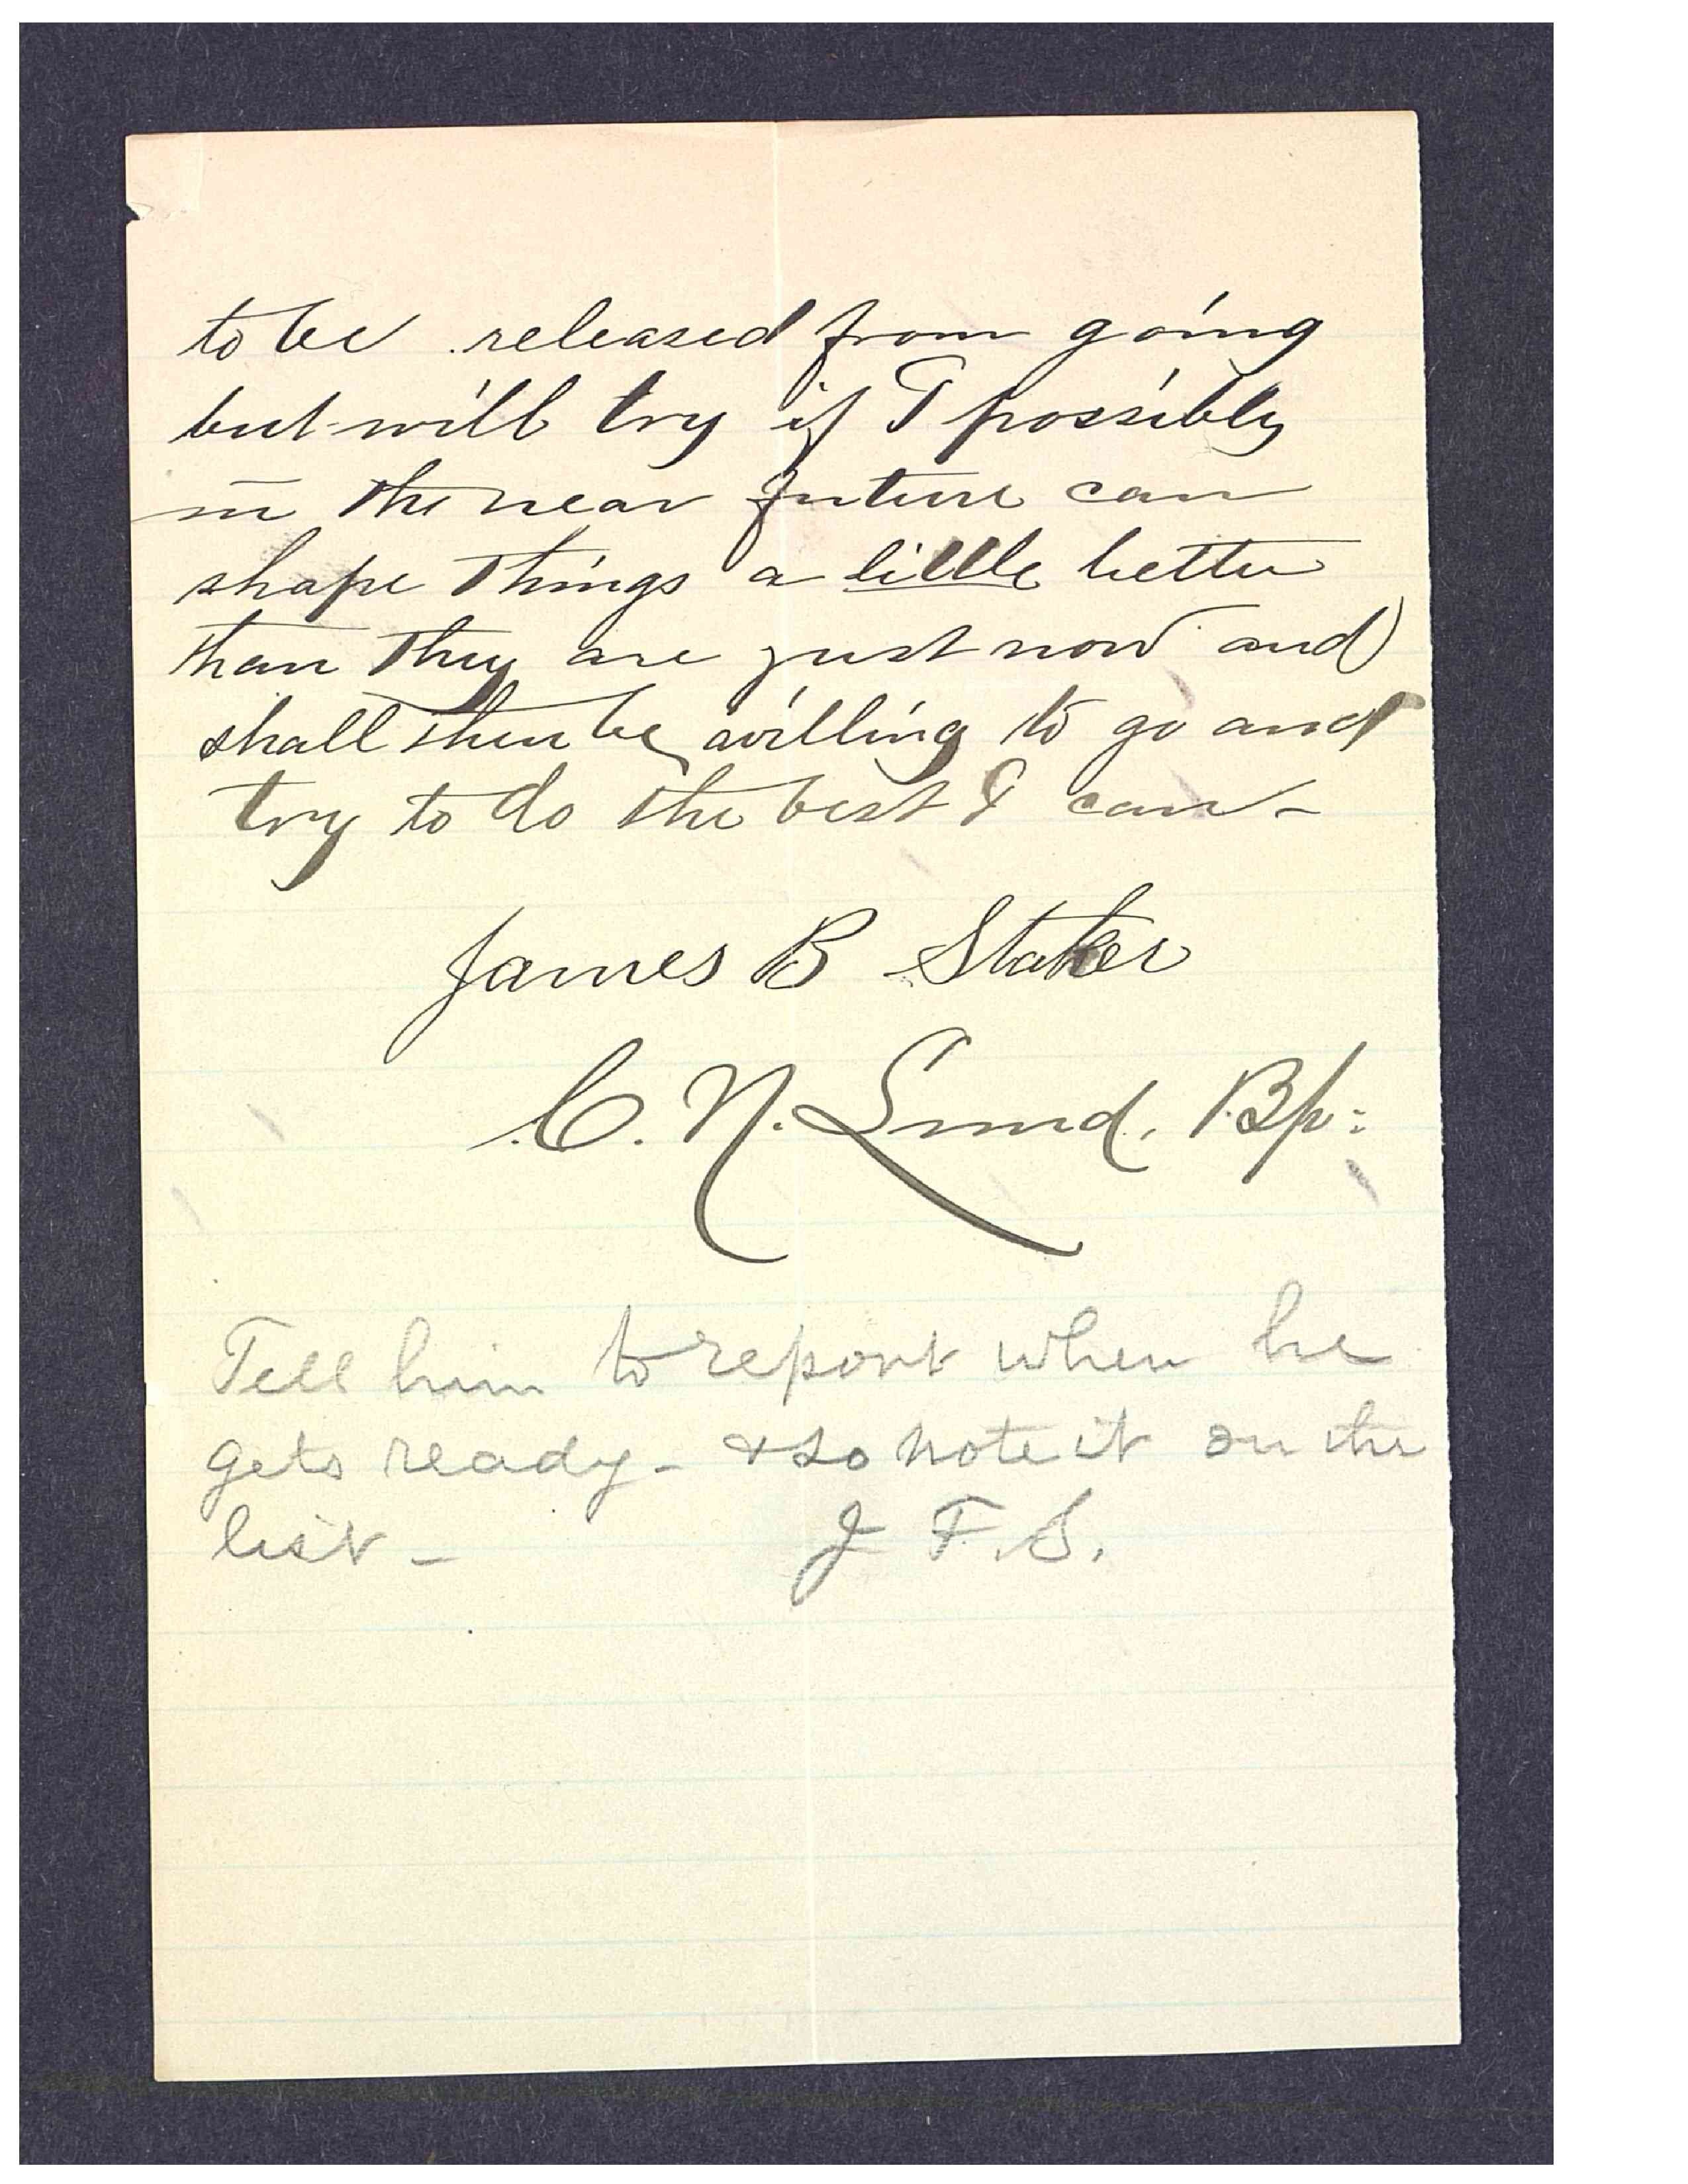 to be released from going
but will try if I possibly
in the near future can
shape things a little better
than they are just now and
shall then be willing to go and
try to do the best I can -
James B Staker
C. N. Lund, Bp:
Tell him to report when he
gets ready - & so note it on the
list -  J F. S.